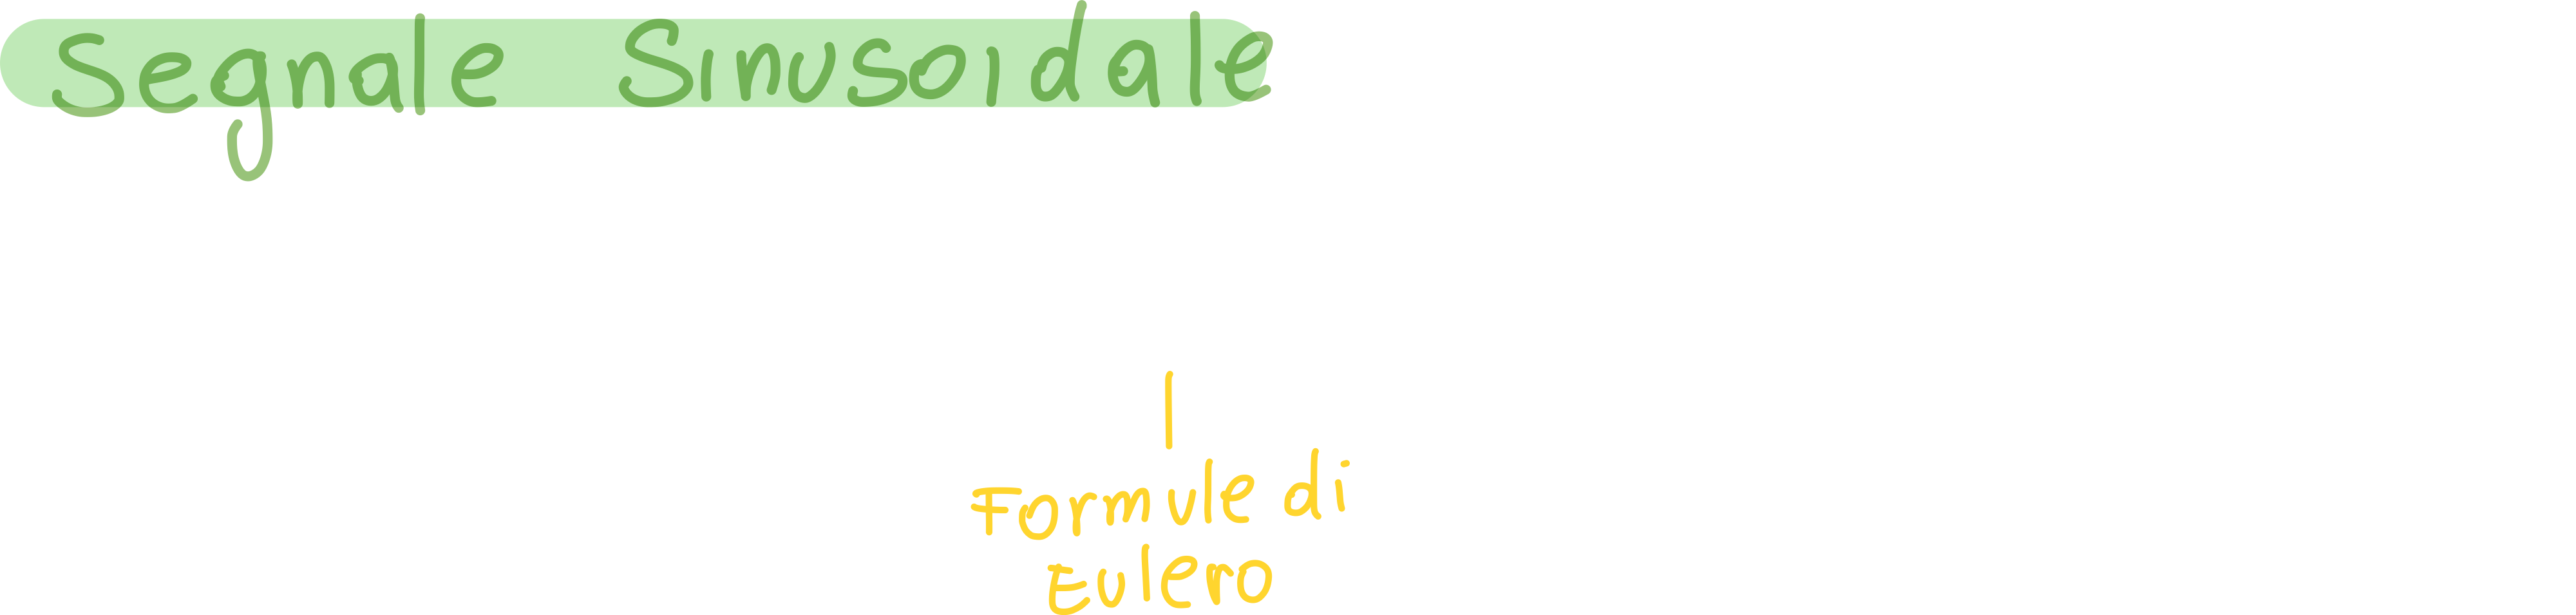 Segnale Sinusoidale
Formule di
Eulero